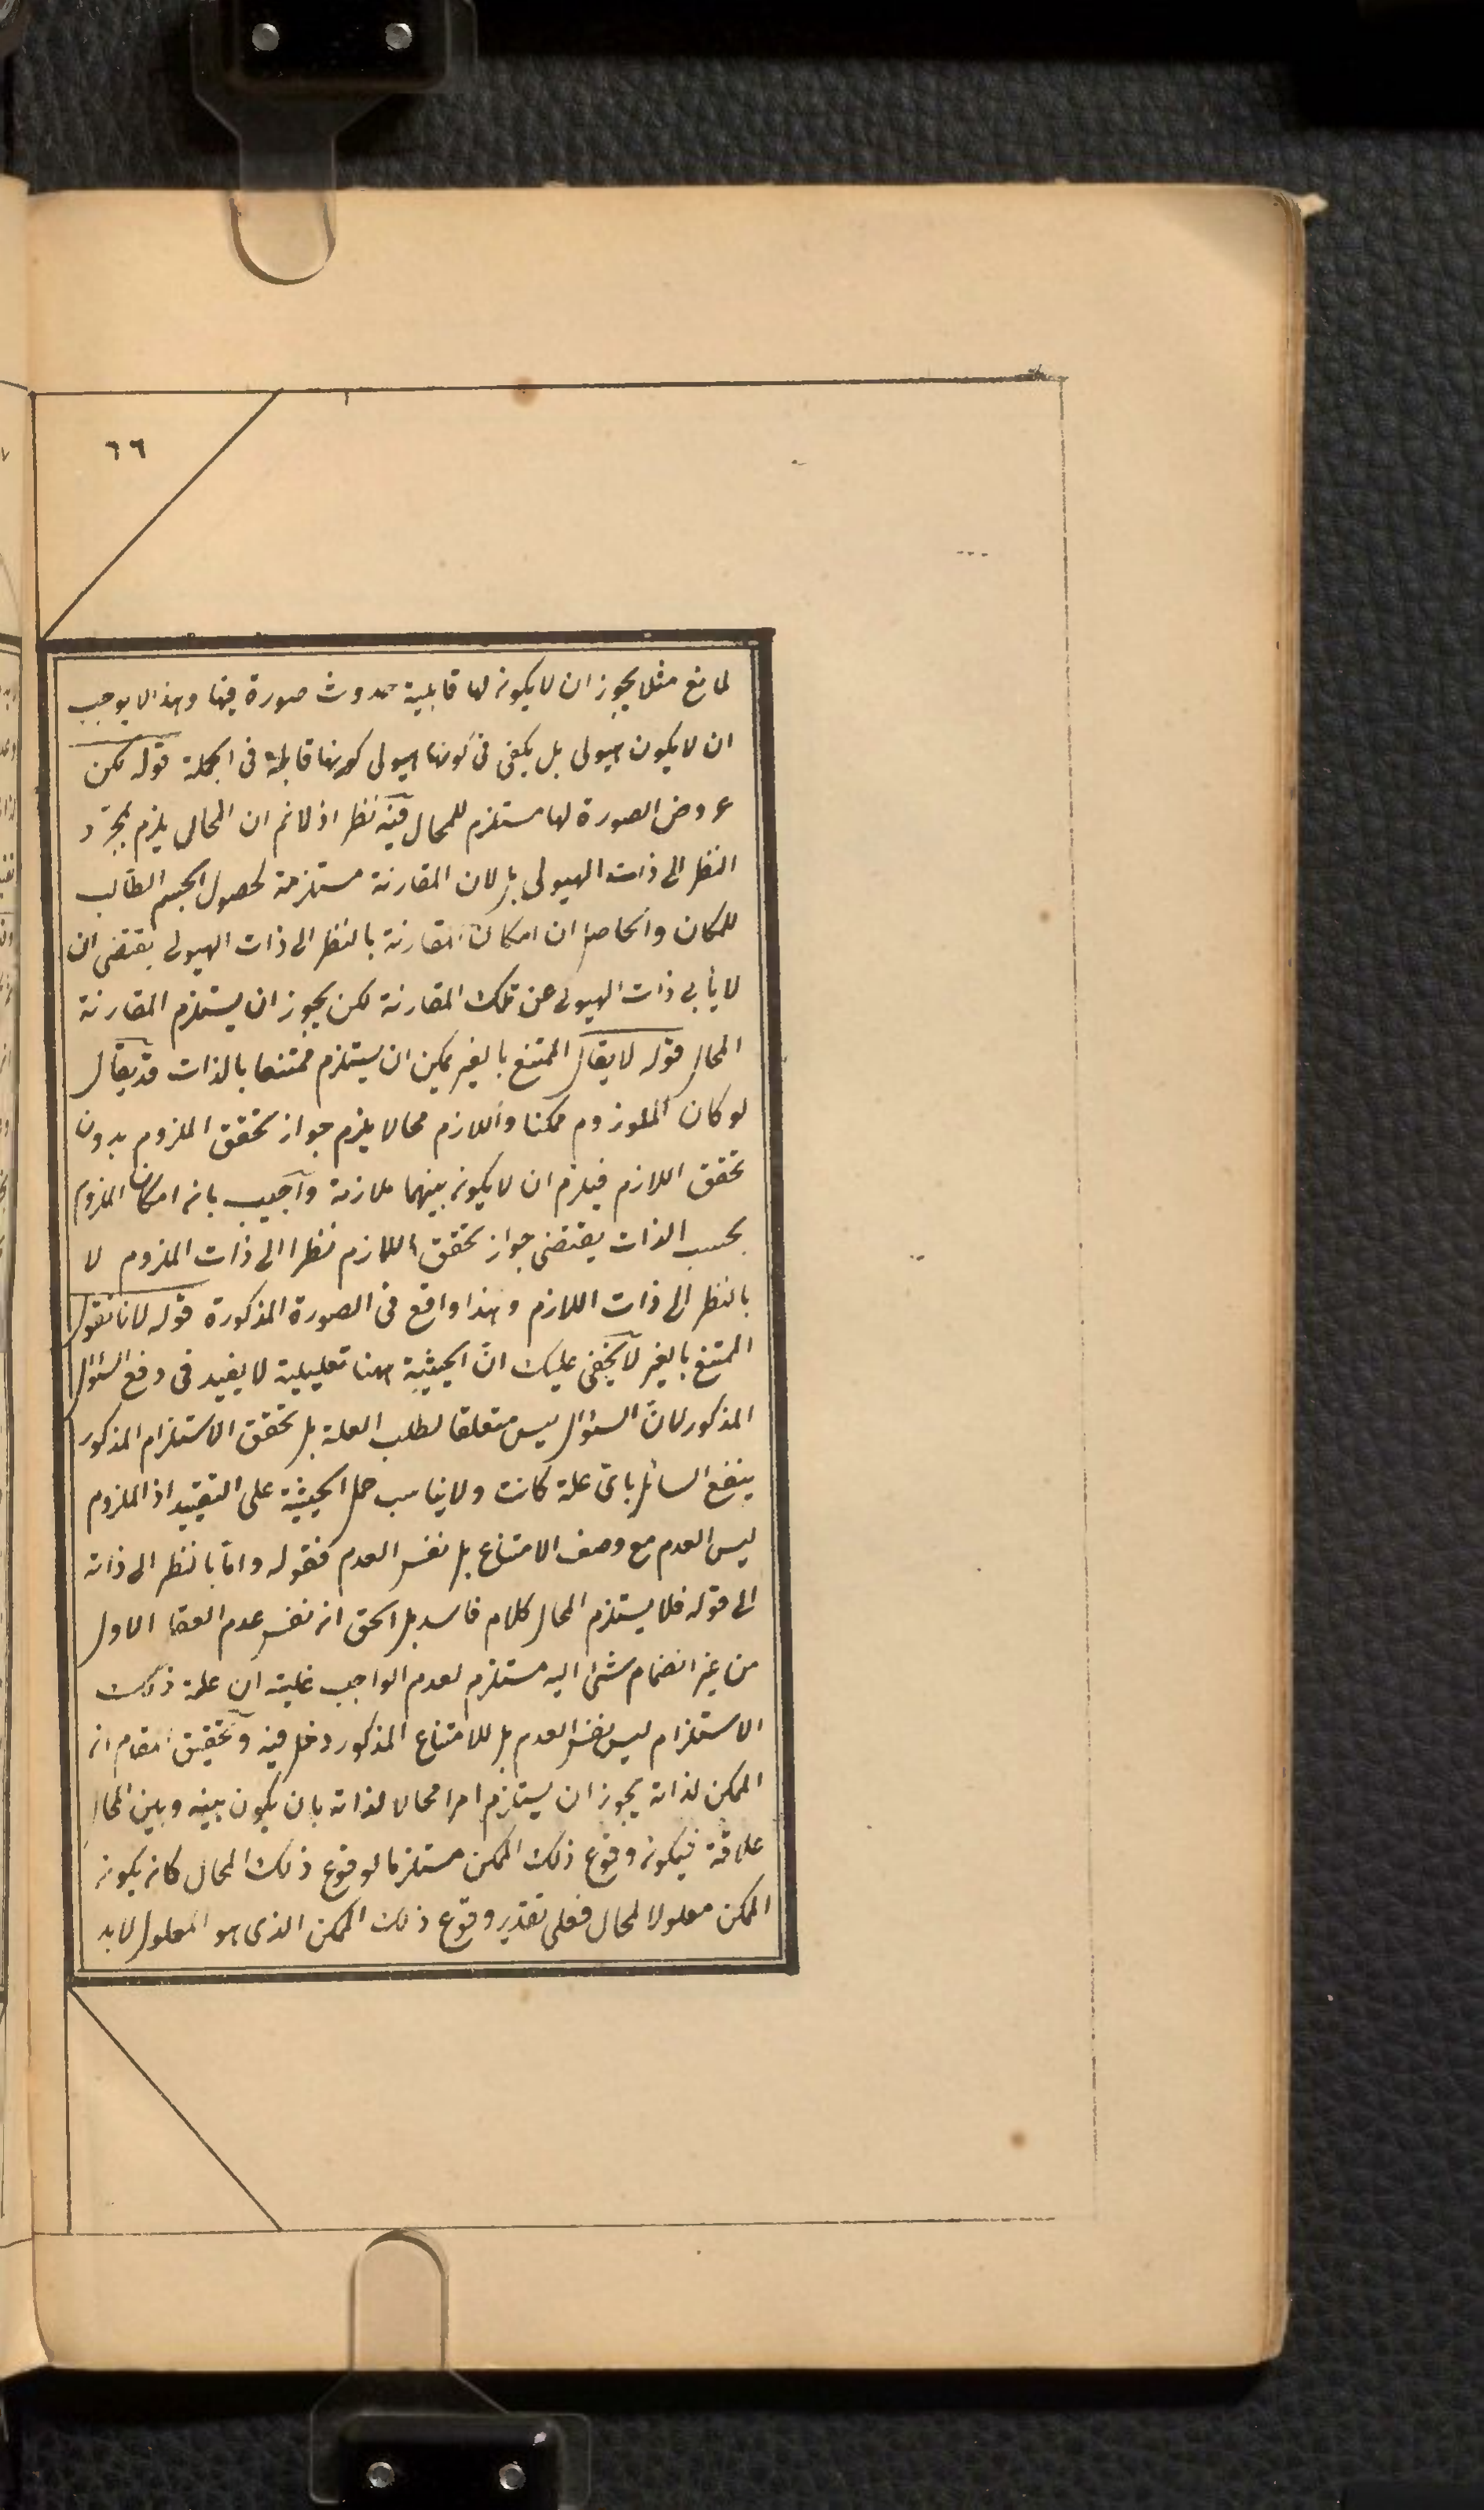 ٦٦
لمانع مثلا يجوز ان لا يكون لها قابلية حدوث صورة فيها وهذا لا يوجب
ان لا يكون هيولى بل يكفى فى كونها هيولى كونها قابلة فى الجملة قوله لكن
عروض الصورة لها مستلزم للمحال فيه نظر اذ لا نم ان المحال يلزم بمجرد
النظر الى ذات الهيولى بل لان المقارنة مستلزمة لحصول الجسم الطالب
للمكان والحاصل ان امكان المقارنة بالنظر الى ذات الهيولى يقتضى ان
لا يأبى ذات الهيولى عن تلك المقارنة لكن يجوز ان يستلزم المقارنة
المحال قوله لا يقال الممتنع بالغير يمكن ان يستلزم ممتنعا بالذات قد يقال
لو كان الملوزوم ممكنا واللازم محالا يلزم جواز تحقق الملزوم بدون
تحقق اللازم فيلزم ان لا يكون بينهما ملازمة واجيب بانه امكان الملزوم
بحسب الذات يقتضى جواز تحقق اللازم نظرا الى ذات الملزوم لا
بالنظر الى ذات اللازم وهذا واقع فى الصورة المذكورة قوله لانا نقول
الممتنع بالغير لا يخفى عليك انّ الحيثية ههنا تعليلية لا يفيد فى دفع السؤال
المذكور لانّ السؤال ليس متعلقا لطلب العلة بل تحقق الاستلزام المذكور
ينفع السائل باىّ علة كانت ولا يناسب حمل الحيثية على التقييد اذ الملزوم
ليس العدم مع وصف الامتناع بل نفس العدم فقوله وامّا بالنظر الى ذاته
الى قوله فلا يستلزم المحال كلام فاسد بل الحق انه نفس عدم العقل الاول
من غير انضمام شئ اليه مستلزم لعدم الواجب غايته ان علة ذلك
الاستلزام ليس نفس العدم بل للامتناع المذكور دخل فيه وتحقيق المقام انه
الممكن لذاته يجوز ان يستلزم امرا محالا لذاته بان يكون بينه وبين المحال
علاقة فيكون وقوع ذلك الممكن مستلزما لوقوع ذلك المحال كانه يكون
الممكن معلولا لمحال فعلى تقدير وقوع ذلك الممكن الذى هو المعلول لابد